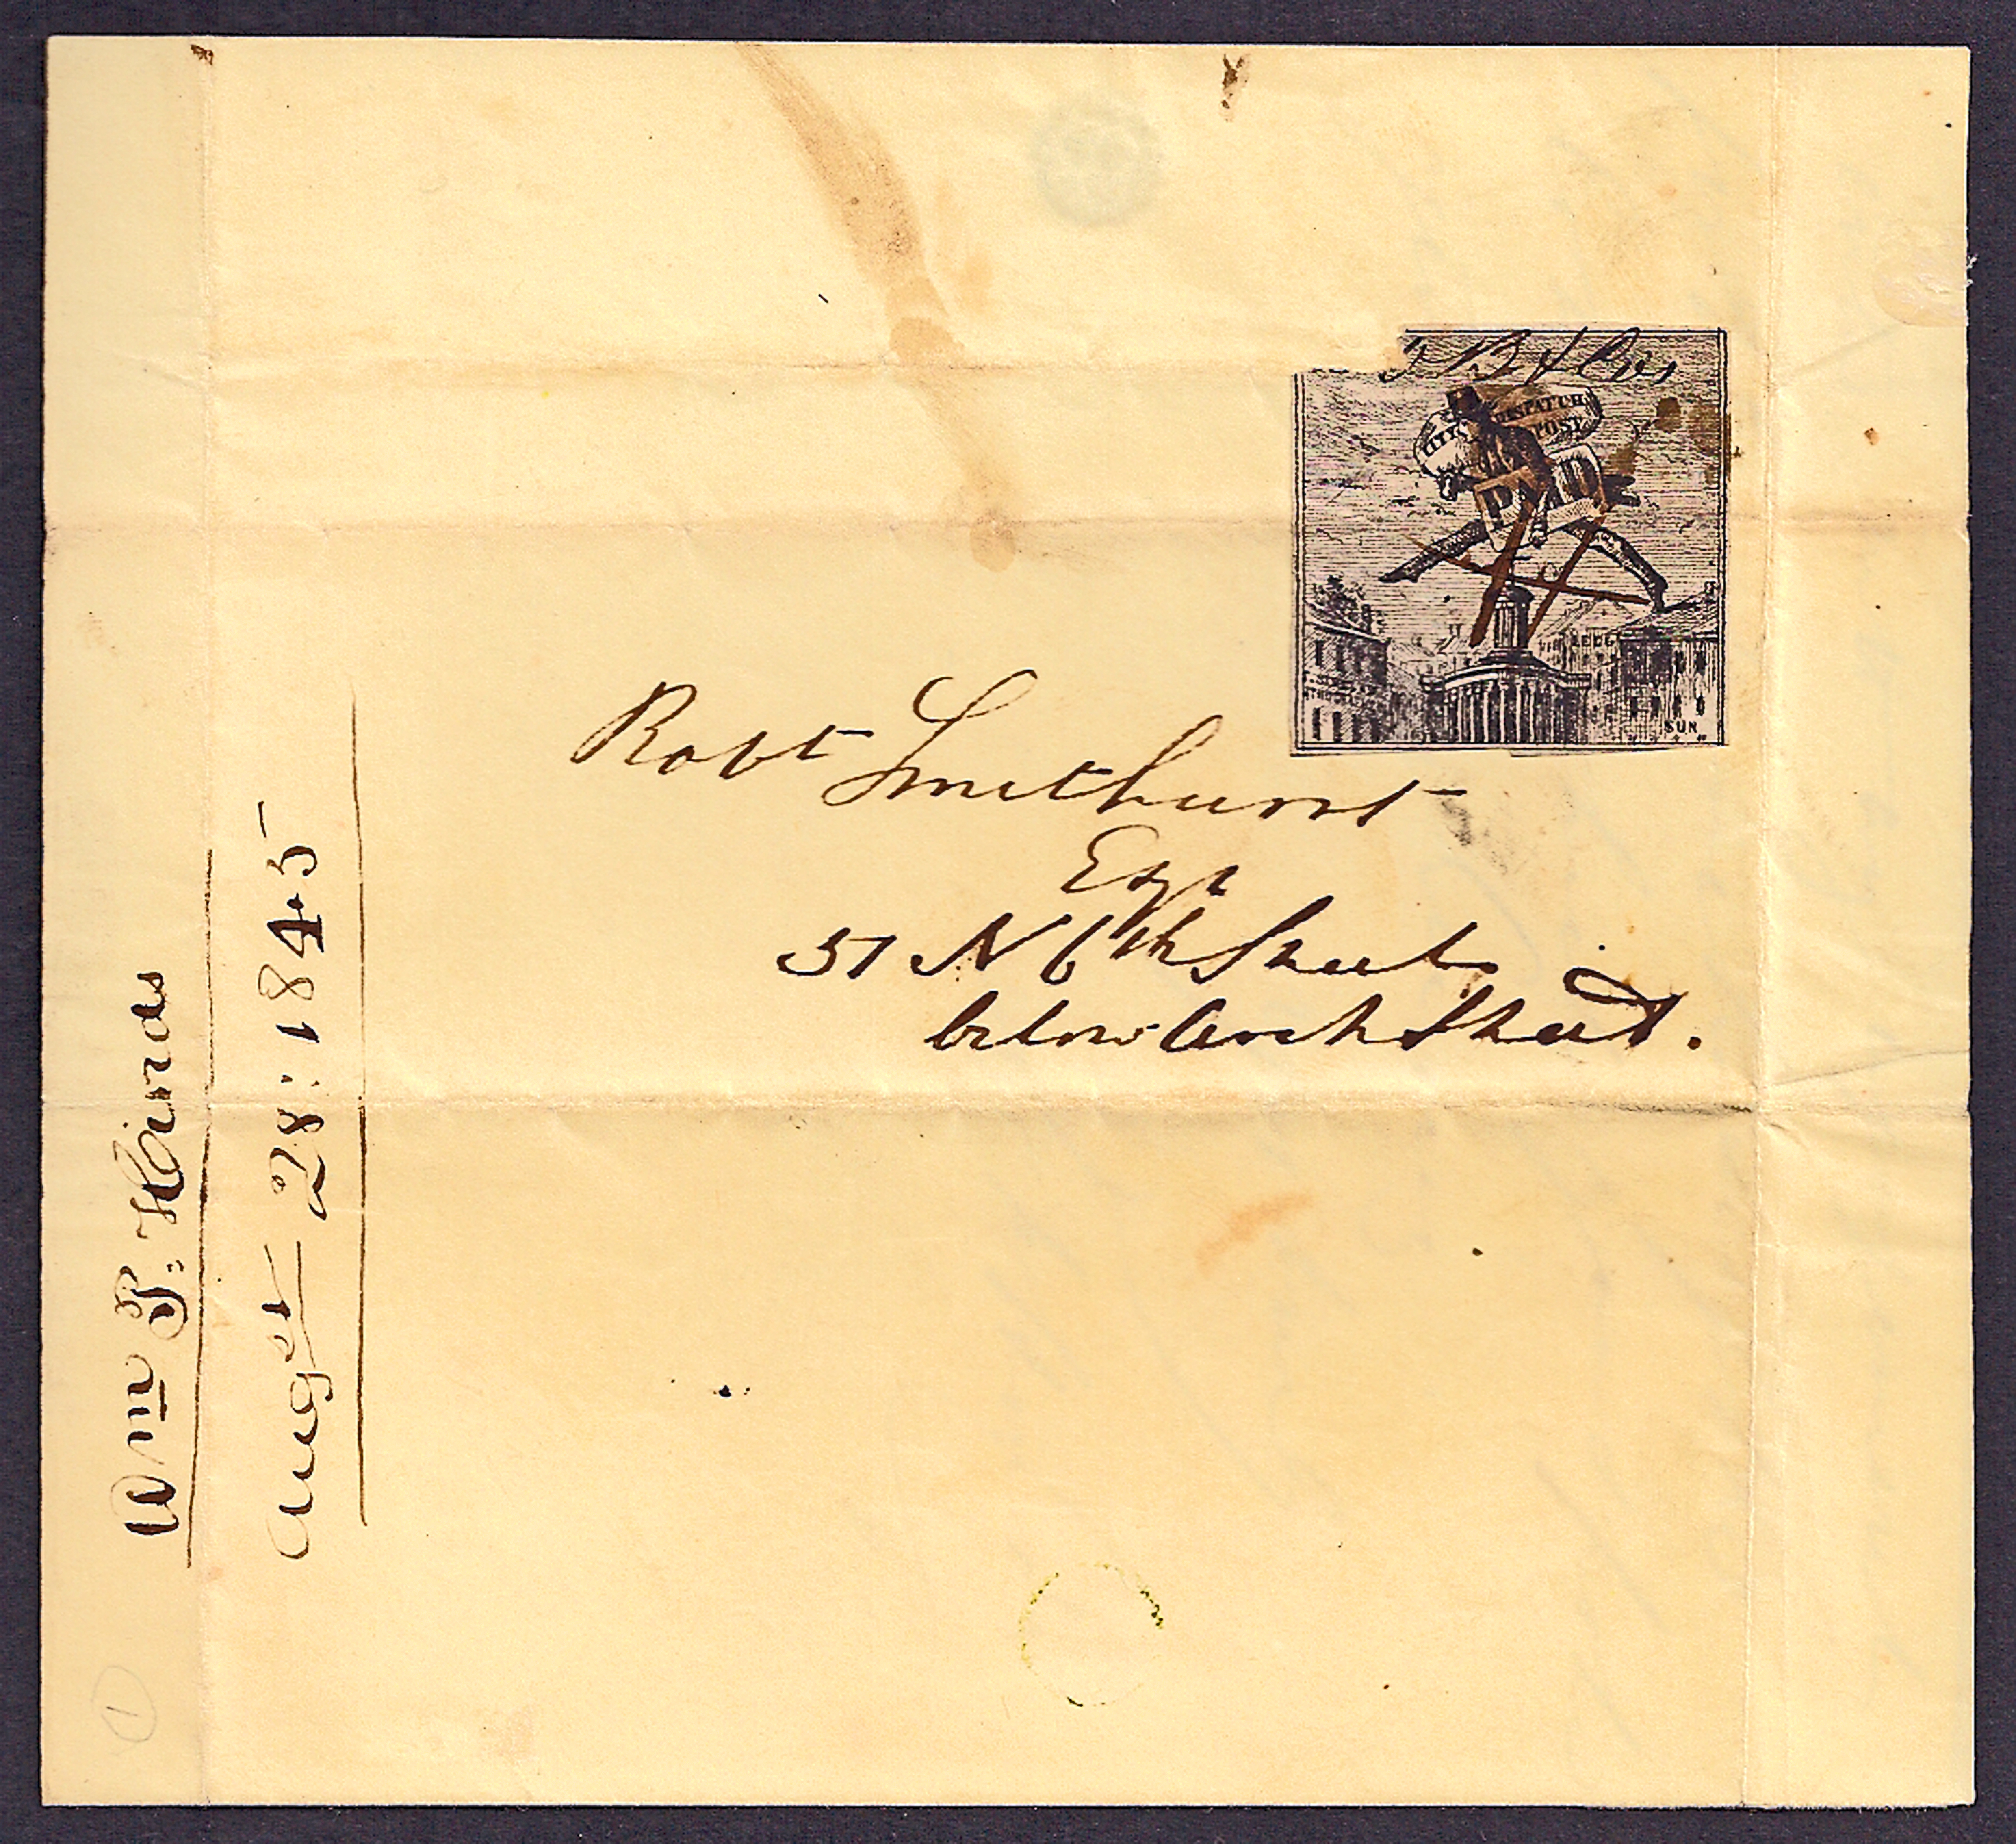 CITY DISPATCH
POST
PAID
LEDG
SUN
Robt Smethurst
Esqr
51 N 6th Street
below Arch Street.
Wm P. Hinds
Augst 28: 1845
1